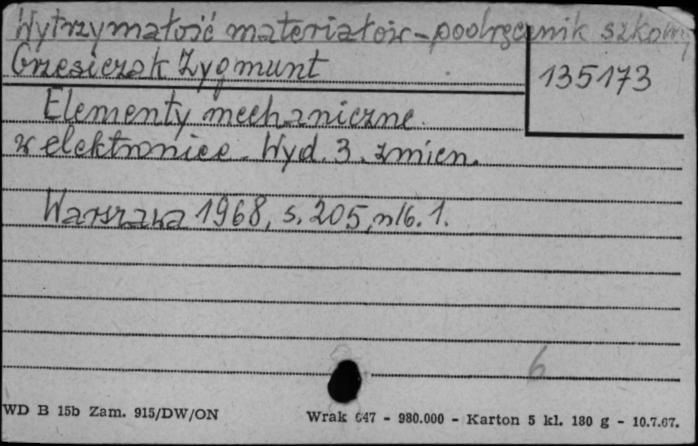 Wytrzymałość materiałów - podręcznik szkolny
Grzesiczak Zygmunt
135173
Elementy mechaniczne
w elektronice. Wyd. 3. zmien.
Warszawa 1968, s. 205, nlb. 1.
6
WD B 15b Zam. 915/DW/ON
Wrak 647 - 980.000 - Karton 5 kl. 180 g - 10.7.67.